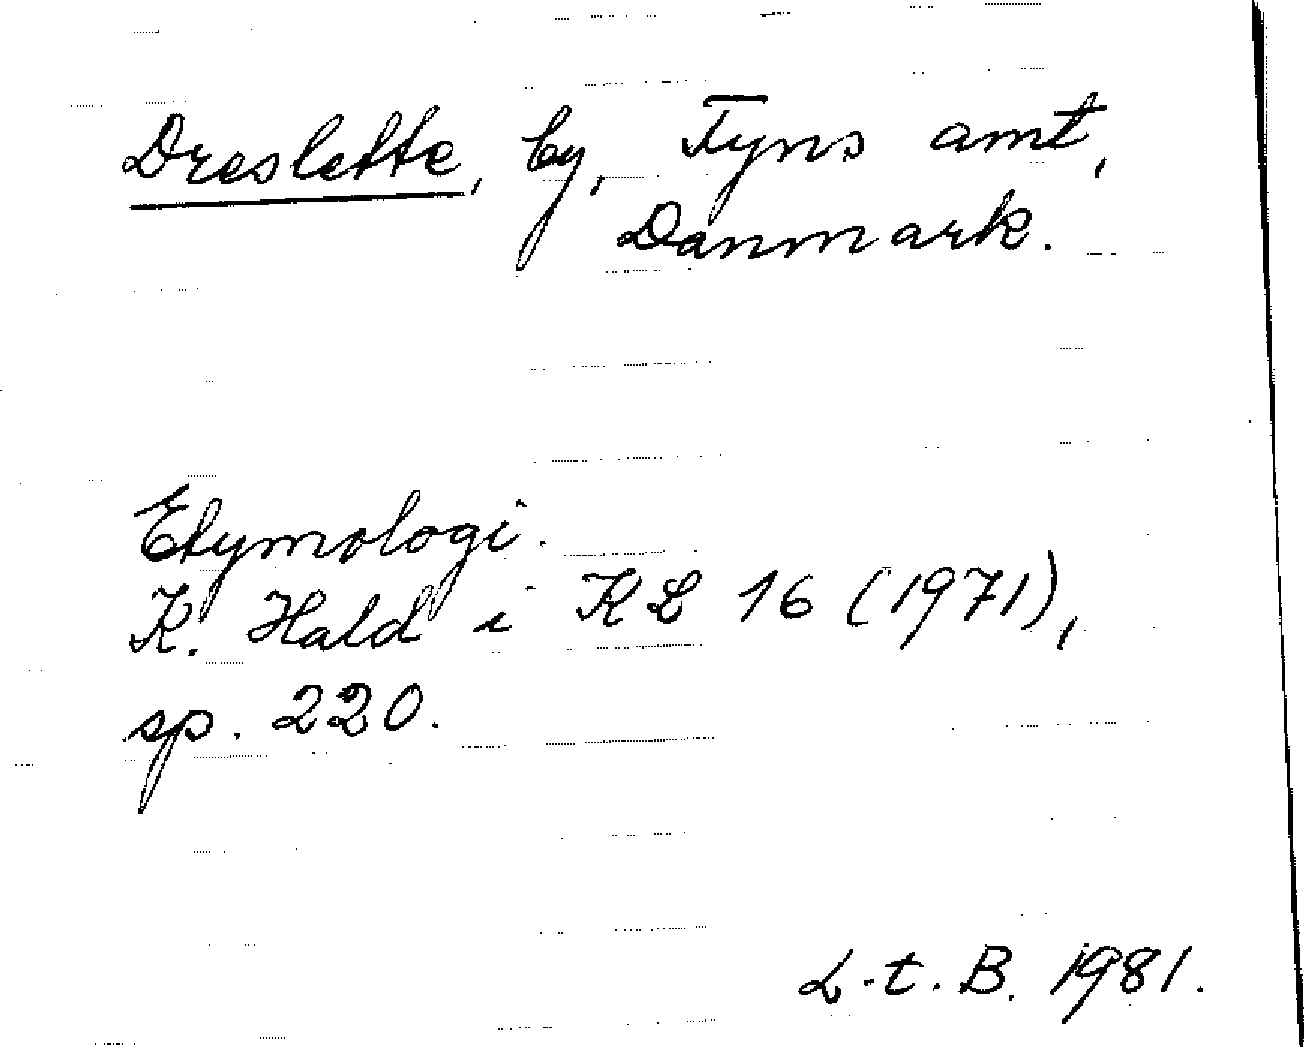 Dreslette, by, Fyns amt,
Danmark.
Etymologi.
K. Hald i KL 16 (1971),
sp. 220.
L.t.B. 1981.